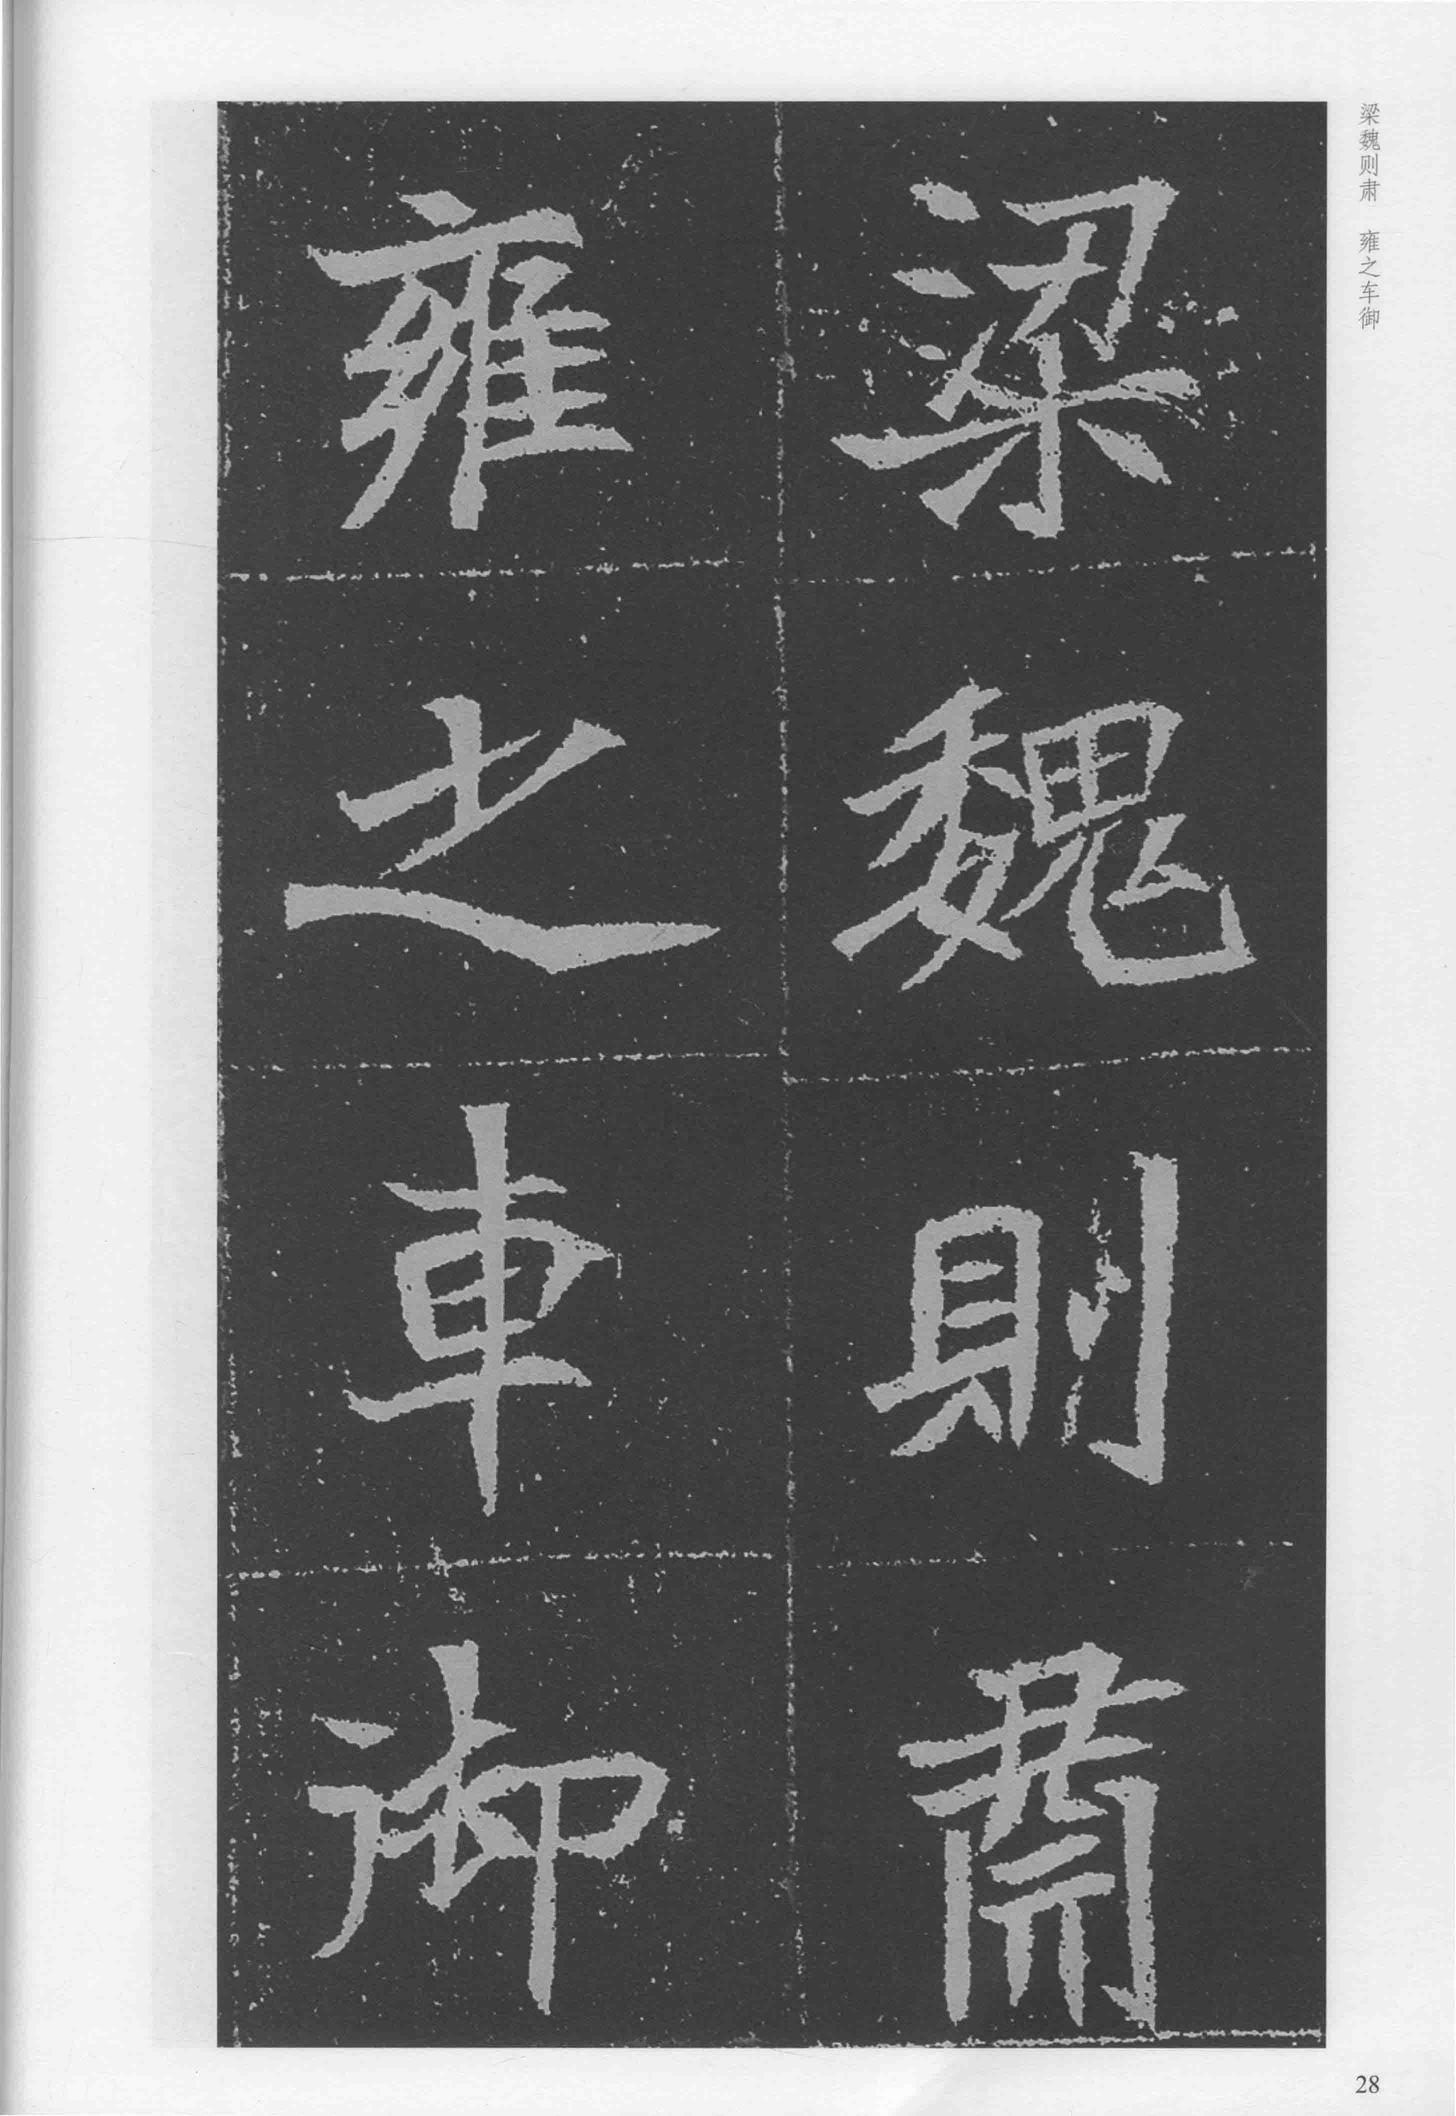 梁魏則肅
雍之車御
梁魏则肃 雍之车御
28